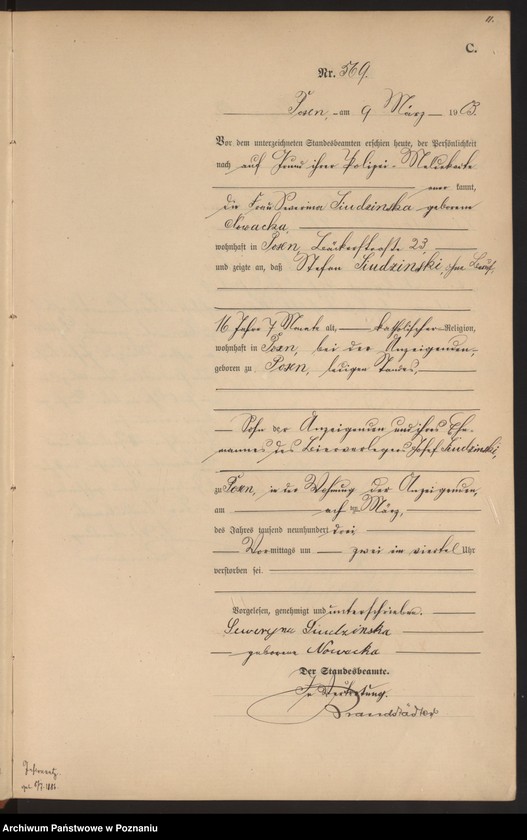 11.
C.
Nr. 569.
Posen, am 9 März 1903.
Vor dem unterzeichneten Standesbeamten erschien heute, der Persönlichkeit
nach auf Grund ihrer Polizei-Meldekarte
kannt,
die Frau Severina Siudzinska geborene
Nowacka,
wohnhaft in Posen, Bäckerstraße 23
und zeigte an, daß Stefan Siudzinski, ohne Beruf,
16 Jahre 7 Monate alt, katholischer Religion,
wohnhaft in Posen, bei der Anzeigenden,
geboren zu Posen, ledigen Standes,
Sohn der Anzeigenden und ihres Ehe-
mannes des Bierverlegers Josef Siudzinski,
zu Posen, in der Wohnung der Anzeigenden,
am acht März,
des Jahres tausend neunhundert drei
Vormittags um zwei im viertel Uhr
verstorben sei.
Vorgelesen, genehmigt und unterschrieben.
Seweryna Siudzinska
geborene Nowacka
Der Standesbeamte.
In Vertretung.
Brandstädter
Archiwum Państwowe w Poznaniu